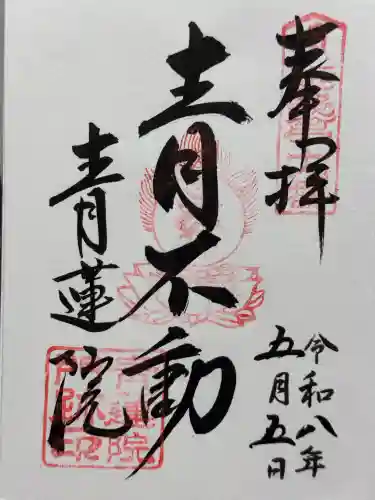 奉拝
令和八年
五月五日
青不動
青蓮院